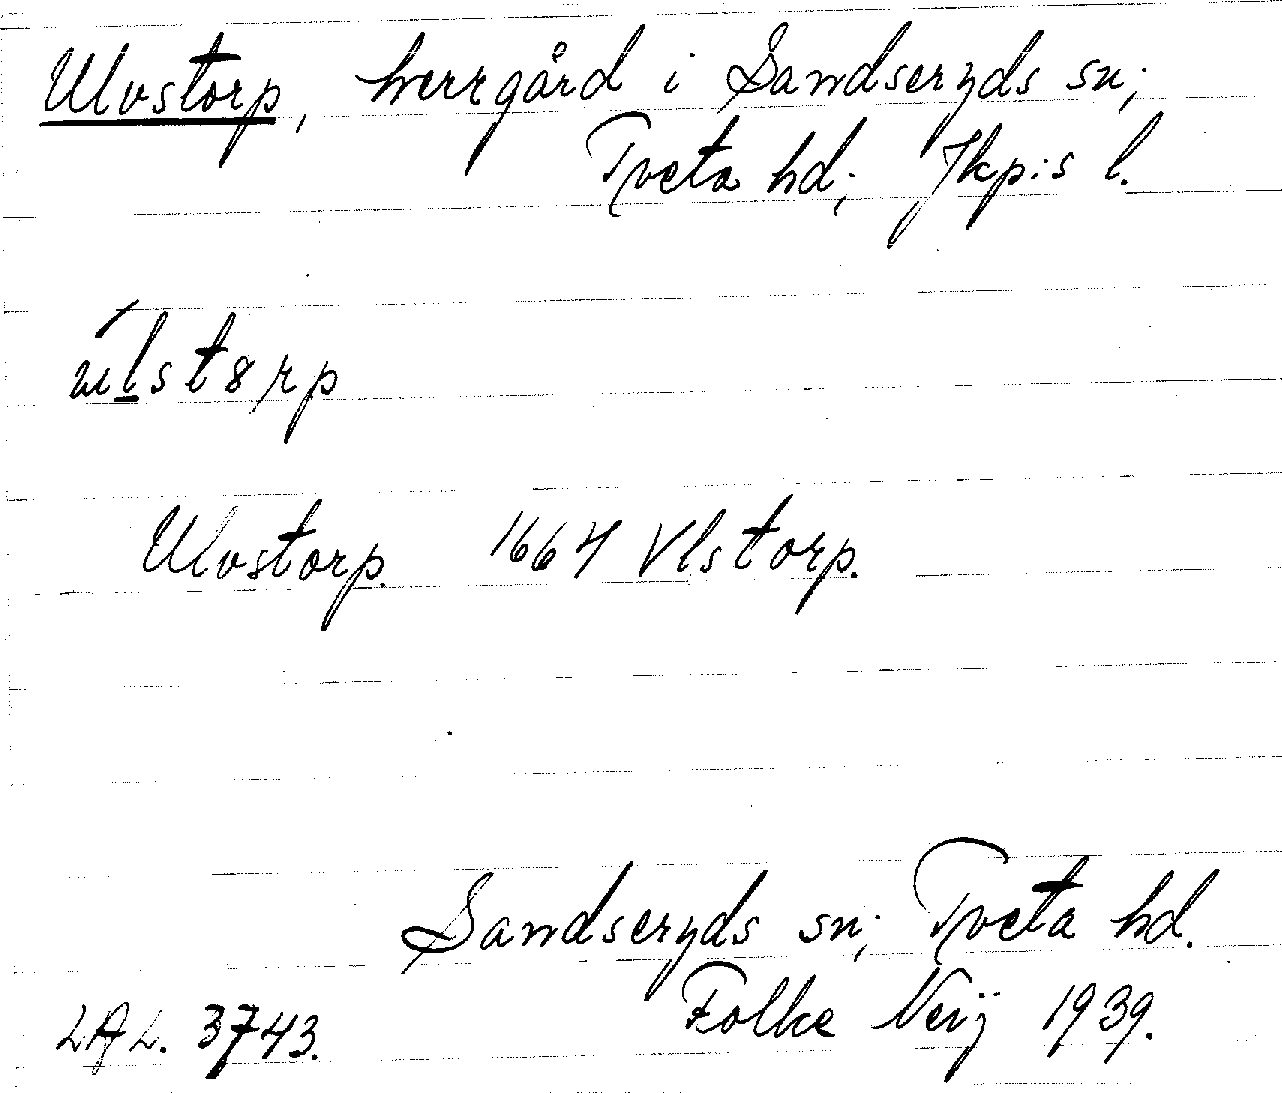 Ulvstorp, herrgård i Sandseryds sn;
Tveta hd; Jkp:s l.
Ulvstorp. 1664 Vlstorp.
Sandseryds sn; Tveta hd.
LAL. 3743. Folke Neij 1939.